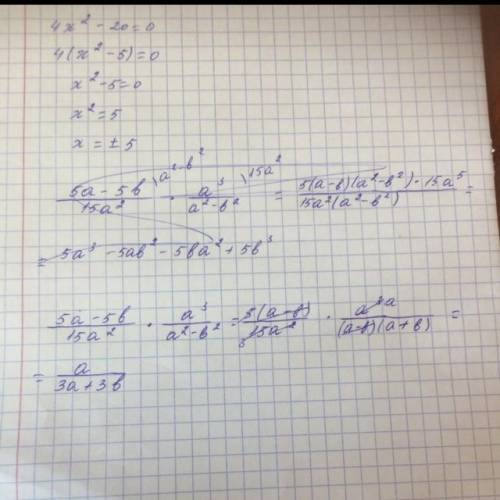 4x² - 20 = 0
4(x² - 5) = 0
x² - 5 = 0
x² = 5
x = ± 5
(5a - 5b)/(15a²) \a² - b² · a³/(a² - b²) \15a² = (5(a - b)(a² - b²) · 15a⁵)/(15a²(a² - b²)) =
= 5a³ - 5ab² - 5ba² + 5b³
(5a - 5b)/(15a²) · a³/(a² - b²) = (5(a - b))/(15a²) 3 · (a³ a)/((a - b)(a + b)) =
= a/(3a + 3b)